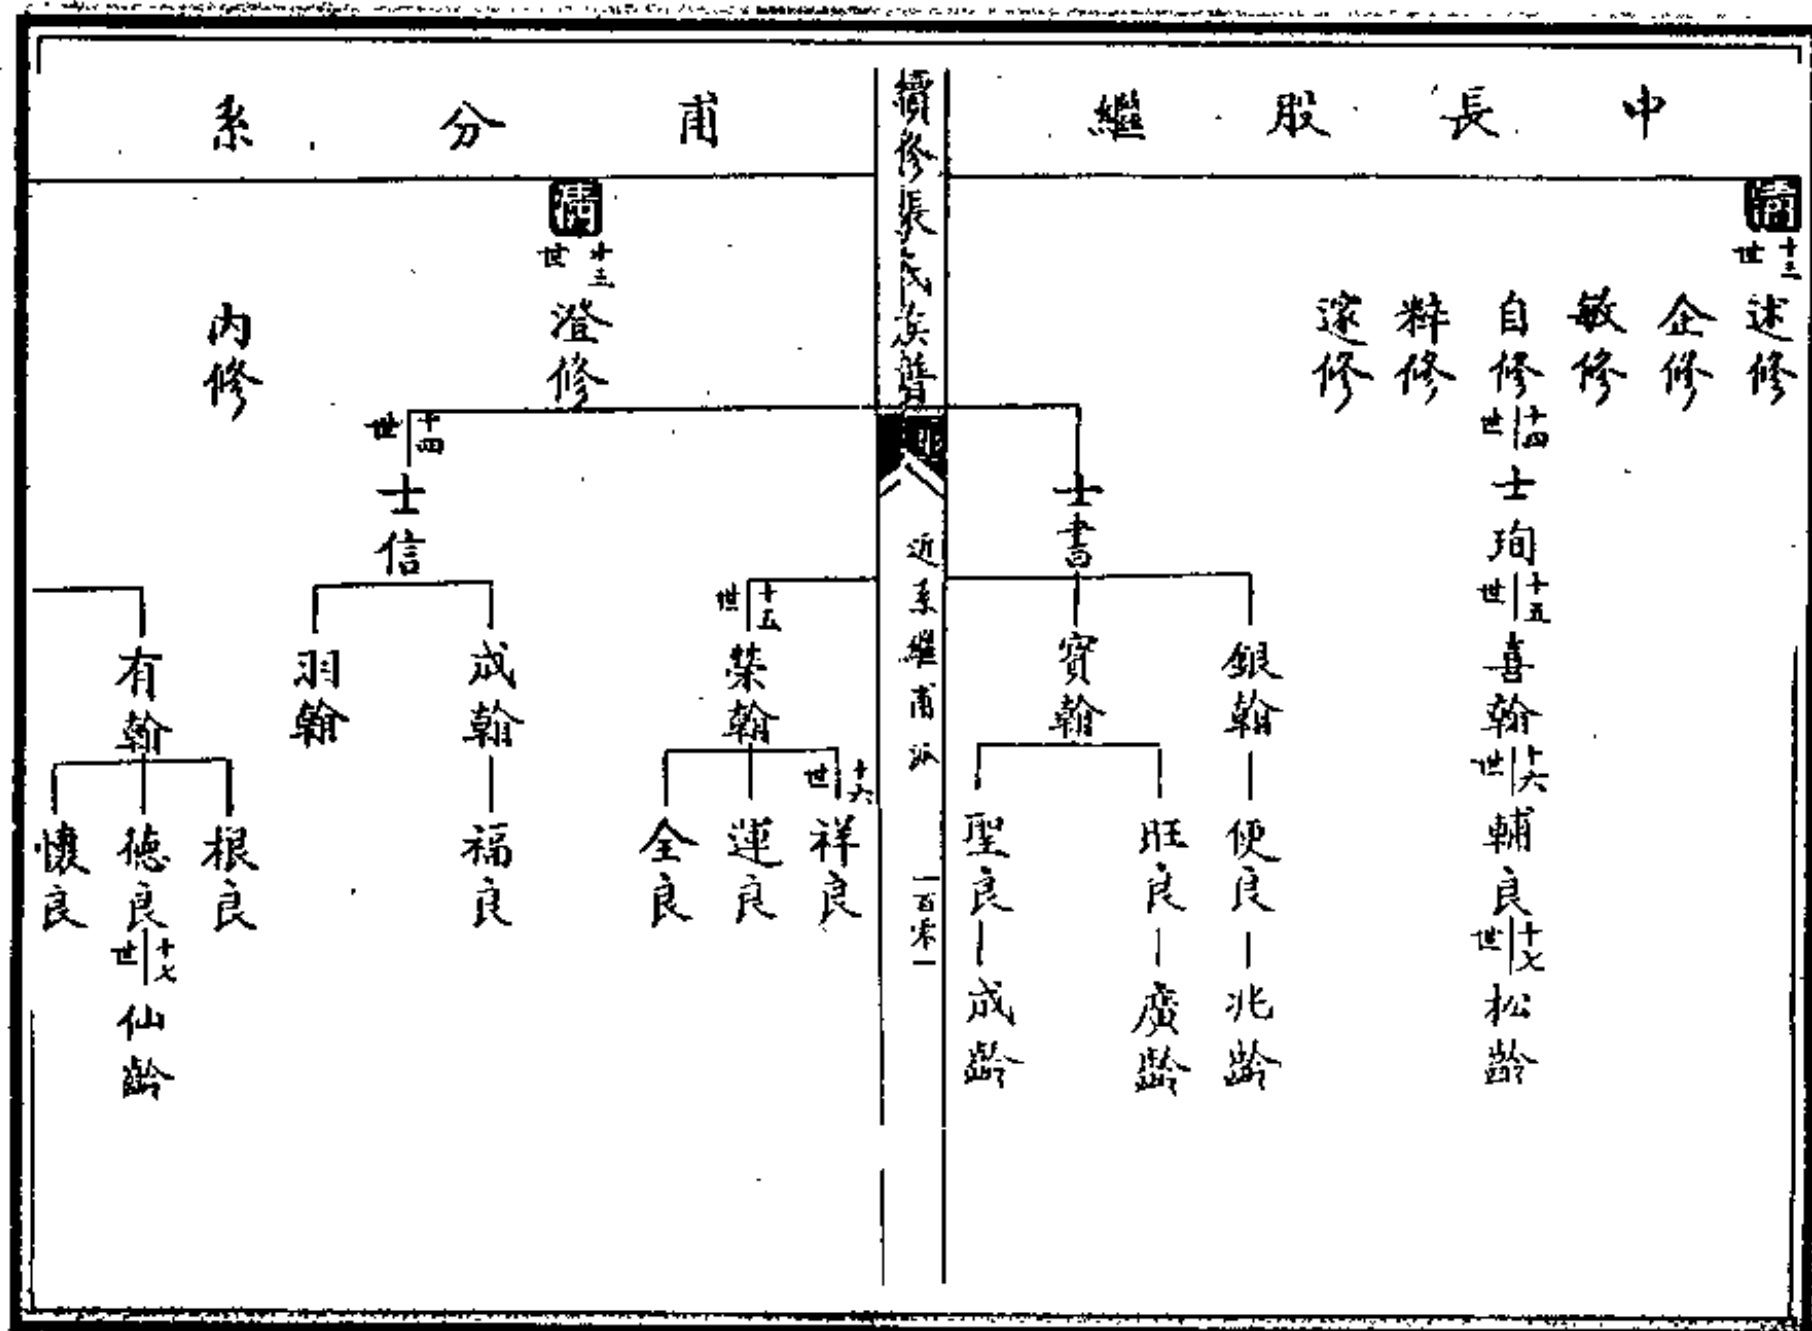 中長股繼
十三世
述修
企修
敏修
自修
粹修
邃修
十四世
士珣
十五世
喜翰
十六世
輔良
十七世
松齡
士書
銀翰
便良
兆齡
寶翰
旺良
廣齡
聖良
成齡
續修張氏族譜
近系繼甫
一百零一
甫分系
十三世
澄修
內修
十四世
士信
十五世
榮翰
十六世
祥良
運良
全良
成翰
福良
羽翰
有翰
根良
德良
懷良
十七世
仙齡